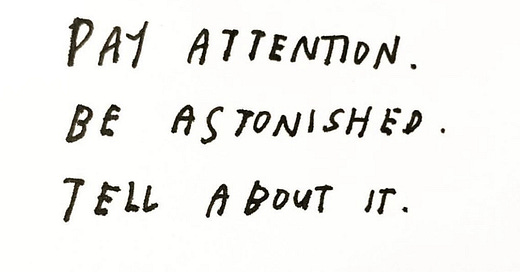 PAY ATTENTION.
BE ASTONISHED.
TELL ABOUT IT.